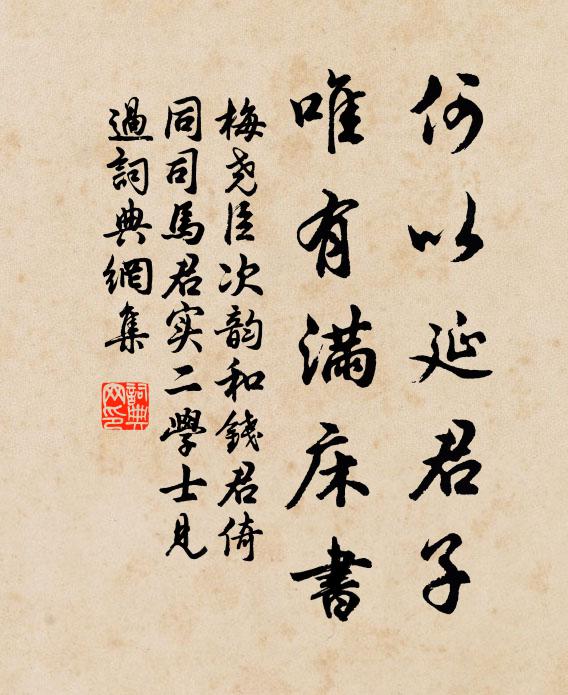 何以延君子
唯有滿床書
梅尧臣次韵和錢君倚
同司馬君实二學士見
過詞典網集
詞典网印